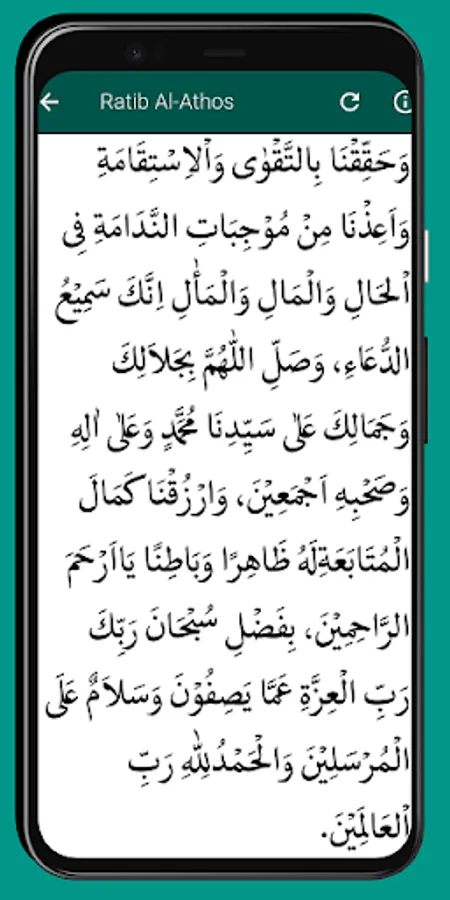 Ratib Al-Athos
وَحَقِّقْنَا بِالتَّقْوٰى وَاْلاِسْتِقَامَةِ
وَاَعِذْنَا مِنْ مُوْجِبَاتِ النَّدَامَةِ فِى
اْلحَالِ وَالْمَالِ وَالْمَأٰلِ اِنَّكَ سَمِيْعُ
الدُّعَاءِ، وَصَلِّ اللّٰهُمَّ بِجَلاَلِكَ
وَجَمَالِكَ عَلٰى سَيِّدِنَا مُحَمَّدٍ وَعَلٰى اٰلِهِ
وَصَحْبِهِ اَجْمَعِيْنَ، وَارْزُقْنَا كَمَالَ
الْمُتَابَعَةِلَهُ ظَاهِرًا وَبَاطِنًا يَااَرْحَمَ
الرَّاحِمِيْنَ، بِفَضْلِ سُبْحَانَ رَبِّكَ
رَبِّ الْعِزَّةِ عَمَّا يَصِفُوْنَ وَسَلاَمٌ عَلَى
الْمُرْسَلِيْنَ وَالْحَمْدُلِلّٰهِ رَبِّ
اْلعَالَمِيْنَ.